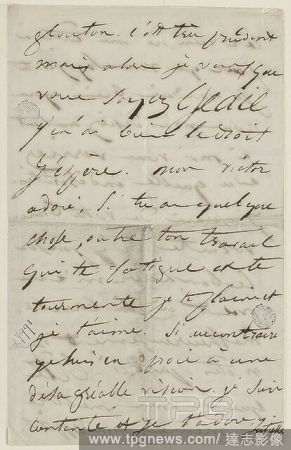 glouton. c'est très prudent
mais alors je veux que
vous soyez
j'en ai bien le droit
j'espère. mon victor
adoré, si tu as quelque
chose, outre ton travail
qui te fatigue et te
tourmente je te plains et
je t'aime. Si au contraire
je suis en proie à une
désagréable vision je suis
contente et je t'adore.
Juliette
TPG
www.tpgnews.com / 達志影像